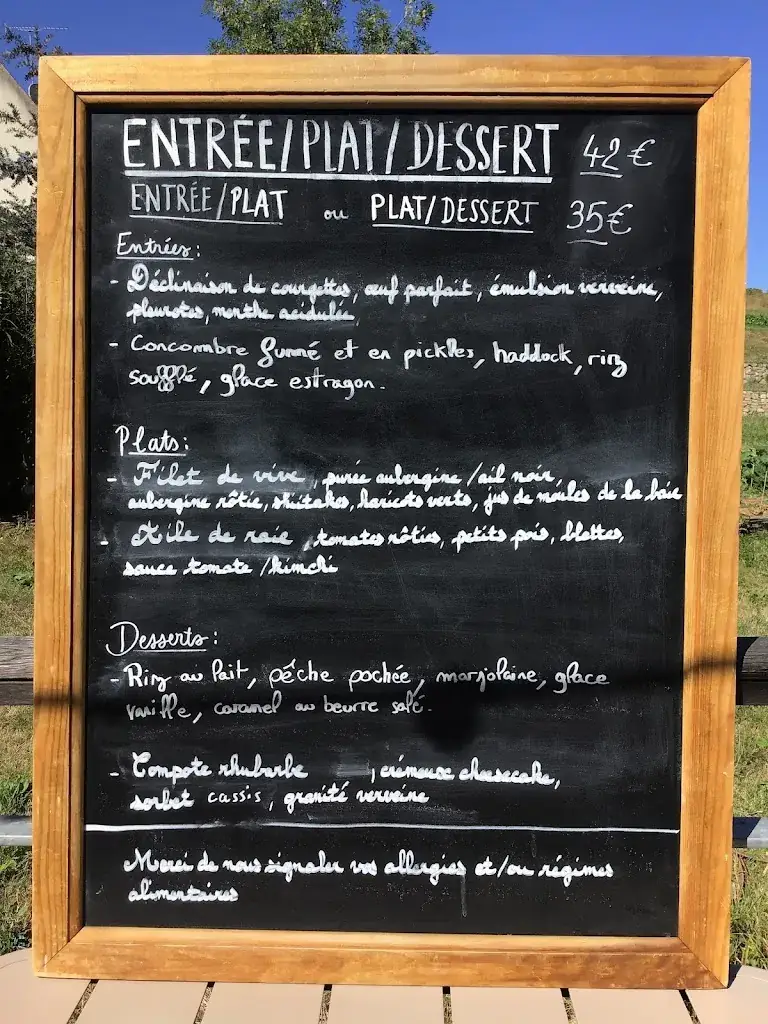 ENTRÉE/PLAT/DESSERT 42€
ENTRÉE/PLAT ou PLAT/DESSERT 35€
Entrées:
- Déclinaison de courgettes, œuf parfait, émulsion verveine,
pleurotes, menthe acidulée
- Concombre fumé et en pickles, haddock, riz
soufflé, glace estragon.
Plats:
- Filet de vive, purée aubergine/ail noir,
aubergine rôtie, shiitakes, haricots verts, jus de moules de la baie
- Aile de raie, tomates rôties, petits pois, blettes,
sauce tomate/kimchi
Desserts:
- Riz au lait, pêche pochée, marjolaine, glace
vanille, caramel au beurre salé.
- Compote rhubarbe, crémeux cheesecake,
sorbet cassis, granité verveine
Merci de nous signaler vos allergies et/ou régimes
alimentaires